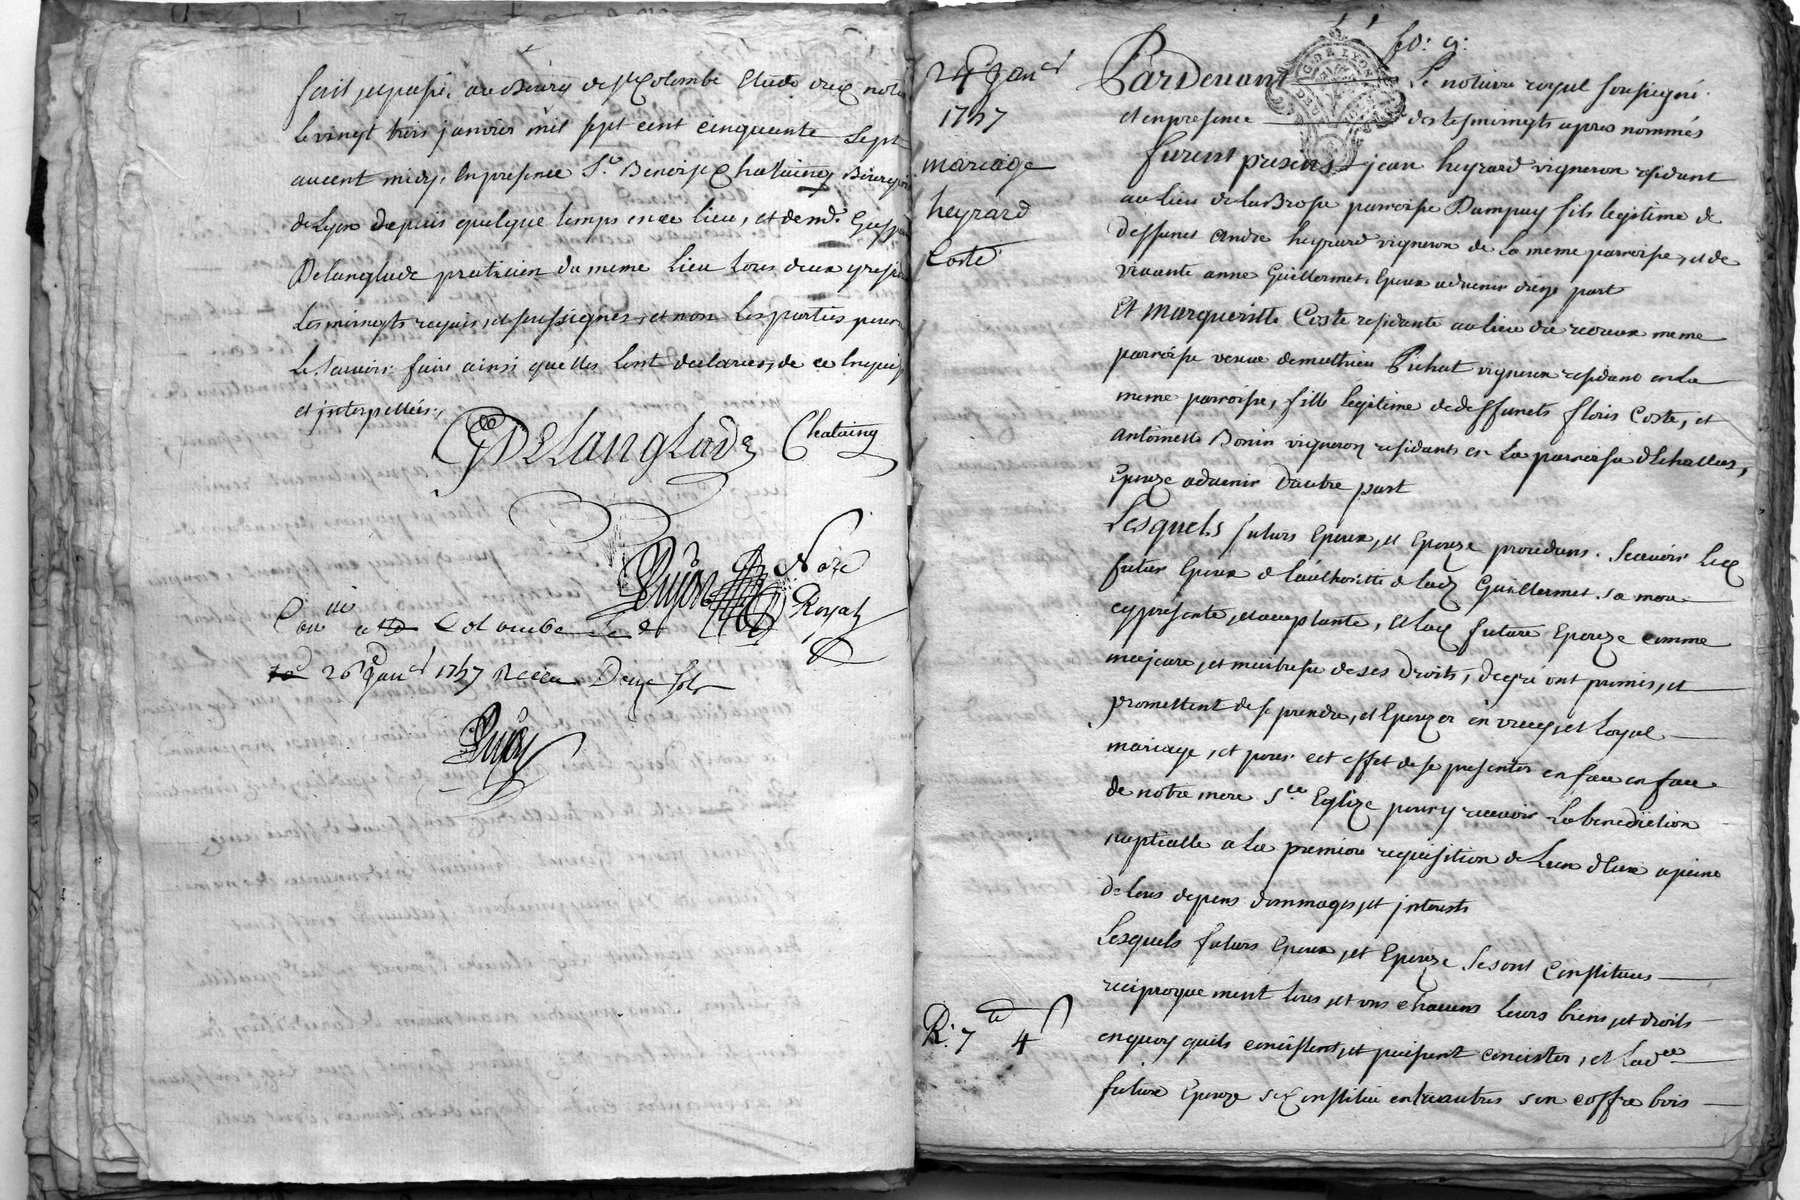 fait et passé au Bourg de ste Colombe Etude dud notre
le vingt trois janvier mil sept cent cinquante sept
avant midy, En presence Sr. Benoist Chalaing Bourgeois
de Lyon depuis quelque temps en ce lieu, et de md.
Delanglade praticien du meme lieu tous deux
Les temoins requis, et soussignes, et non les parties pour
le sçavoir faire ainsi quelles l'ont declarées, de ce Enquis
et interpellées.,
Delanglade Chalaing
Dujon Nore
Royal
Con a ste Colombe le
26 Janer 1757 Receu Douze sols
Dujon
fo: 9:
24e Janer
1757
mariage
heyrard
Coste
Pardevant Le notaire royal soussigné
et en presence des tesmoingts apres nommés
furent presens jean heyrard vigneron residant
au lieu de la Brosse parroisse Dampuy fils legitime de
deffunct andre heyrard vigneron de la meme parroisse, et de
vivante anne Guillermet, Epoux advenir d'une part
Et Margueritte Coste residante au lieu de meme
parroisse veuve de mathieu Pichat vigneron residant en La
meme parroisse, fille legitime de deffuncts floris Coste, et
antoinette Bonin vigneron residants en La parroisse d'Echallas,
Epouze advenir D'autre part
Lesquels futurs Epoux, et Epouze procedans. Scavoir led
futur Epoux de l'authoritté de lad Guillermet sa mere
cy presente, et acceptante, Et lad future Epouze comme
majeure, et maitresse de ses Droits, de gré ont promis, et
promettent de se prendre, et Epouzer en vray, et Loyal
mariage, et pour cet effet de se presenter en face en face
de notre mere Ste Eglize pour y recevoir La benediction
nuptialle a La premiere requisition de L'un d'eux a peine
de tous depens dommages, et interests
Lesquels futurs Epoux, et Epouze se sont Constitues
reciproquement tous, et uns chacuns leurs biens, et droits
en quoy quils consistent, et puissent consister, et Ladte
future Epouze se Constitue entrautres son coffre bois
R: 7 4
G. DE LYON